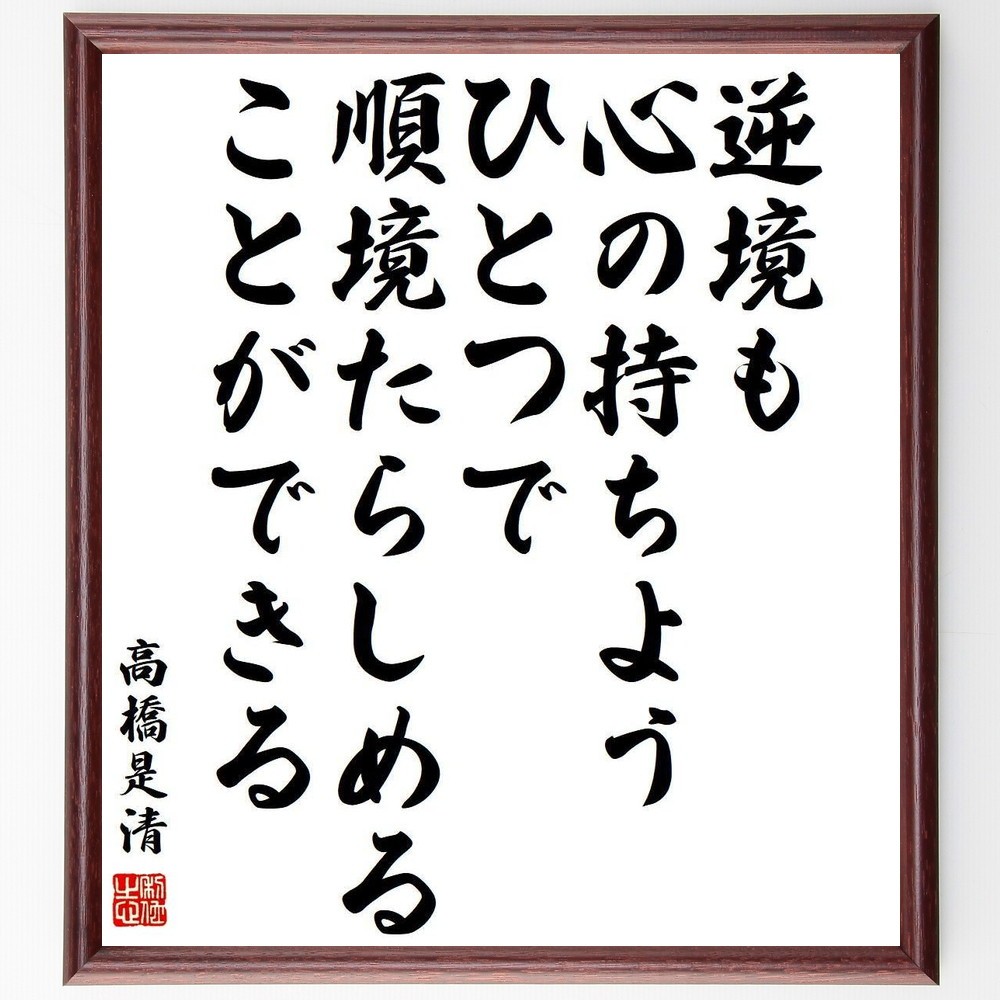 逆境も
心の持ちよう
ひとつで
順境たらしめる
ことができる
高橋是清